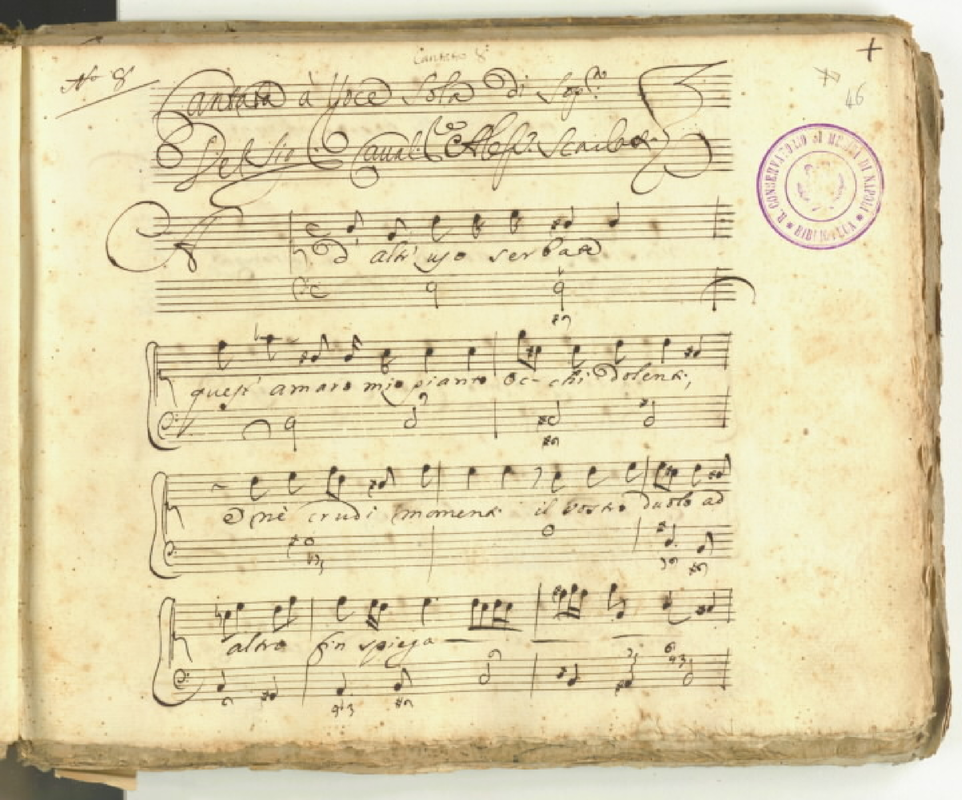 Cantata 8ª
No 8
46
Cantata à Voce Sola di Sop.no
Del Sig.r Caual.re Aless.o Scarlatti
R. CONSERVATORIO DI MUSICA DI NAPOLI * BIBLIOTECA *
Ad altr' uso serbate
quest' amaro mio pianto oc-chi dolenti,
E nè crudi momenti il vostro duolo ad
altro fin spiega